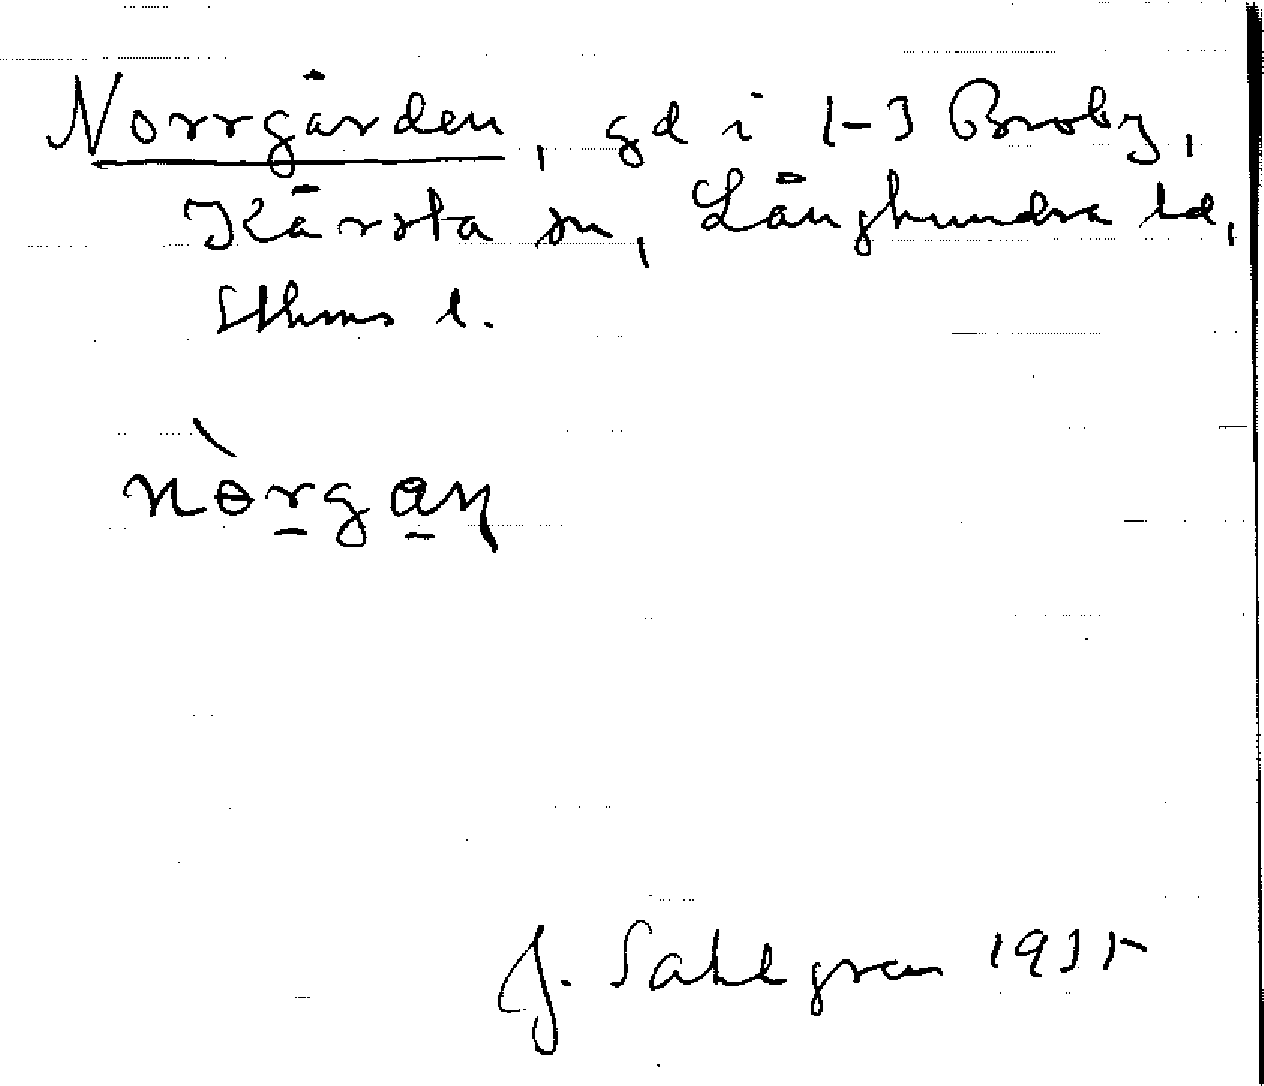 Norrgården, gd i 1-3 Broby,
Kårsta sn, Långhundra hd,
Sthms l.
nòrgan
J. Sahlgren 1935